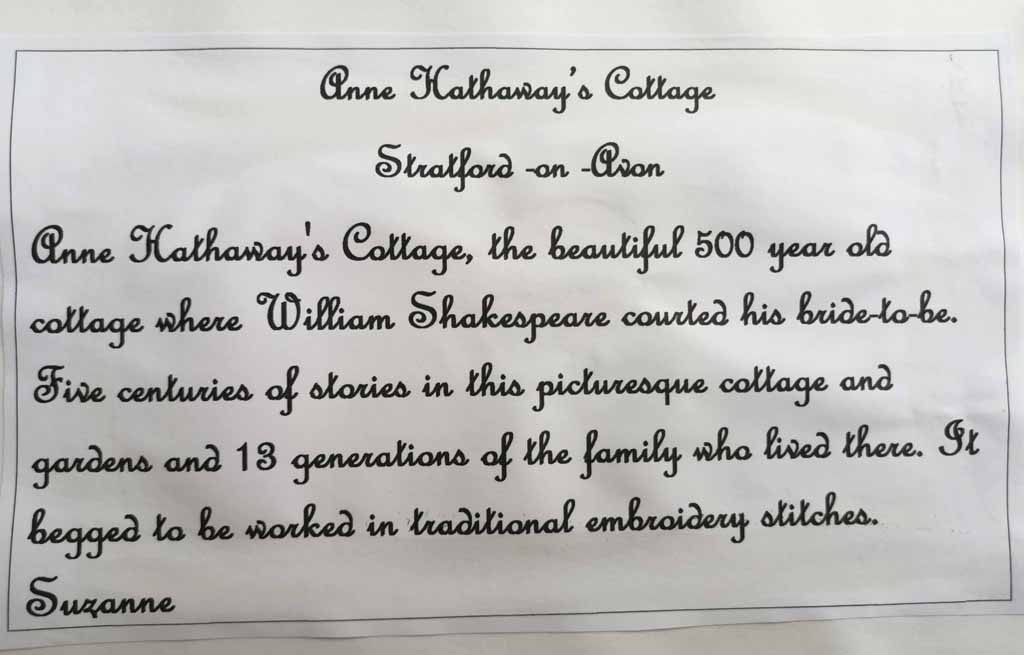 Anne Hathaway's Cottage
Stratford -on -Avon
Anne Hathaway's Cottage, the beautiful 500 year old
cottage where William Shakespeare courted his bride-to-be.
Five centuries of stories in this picturesque cottage and
gardens and 13 generations of the family who lived there. It
begged to be worked in traditional embroidery stitches.
Suzanne